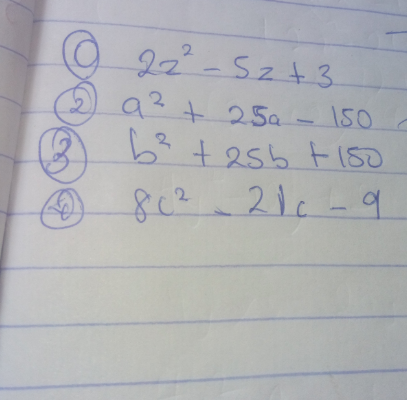 ① 2z² - 5z + 3
② a² + 25a - 150
③ b² + 25b + 150
④ 8c² - 21c - 9